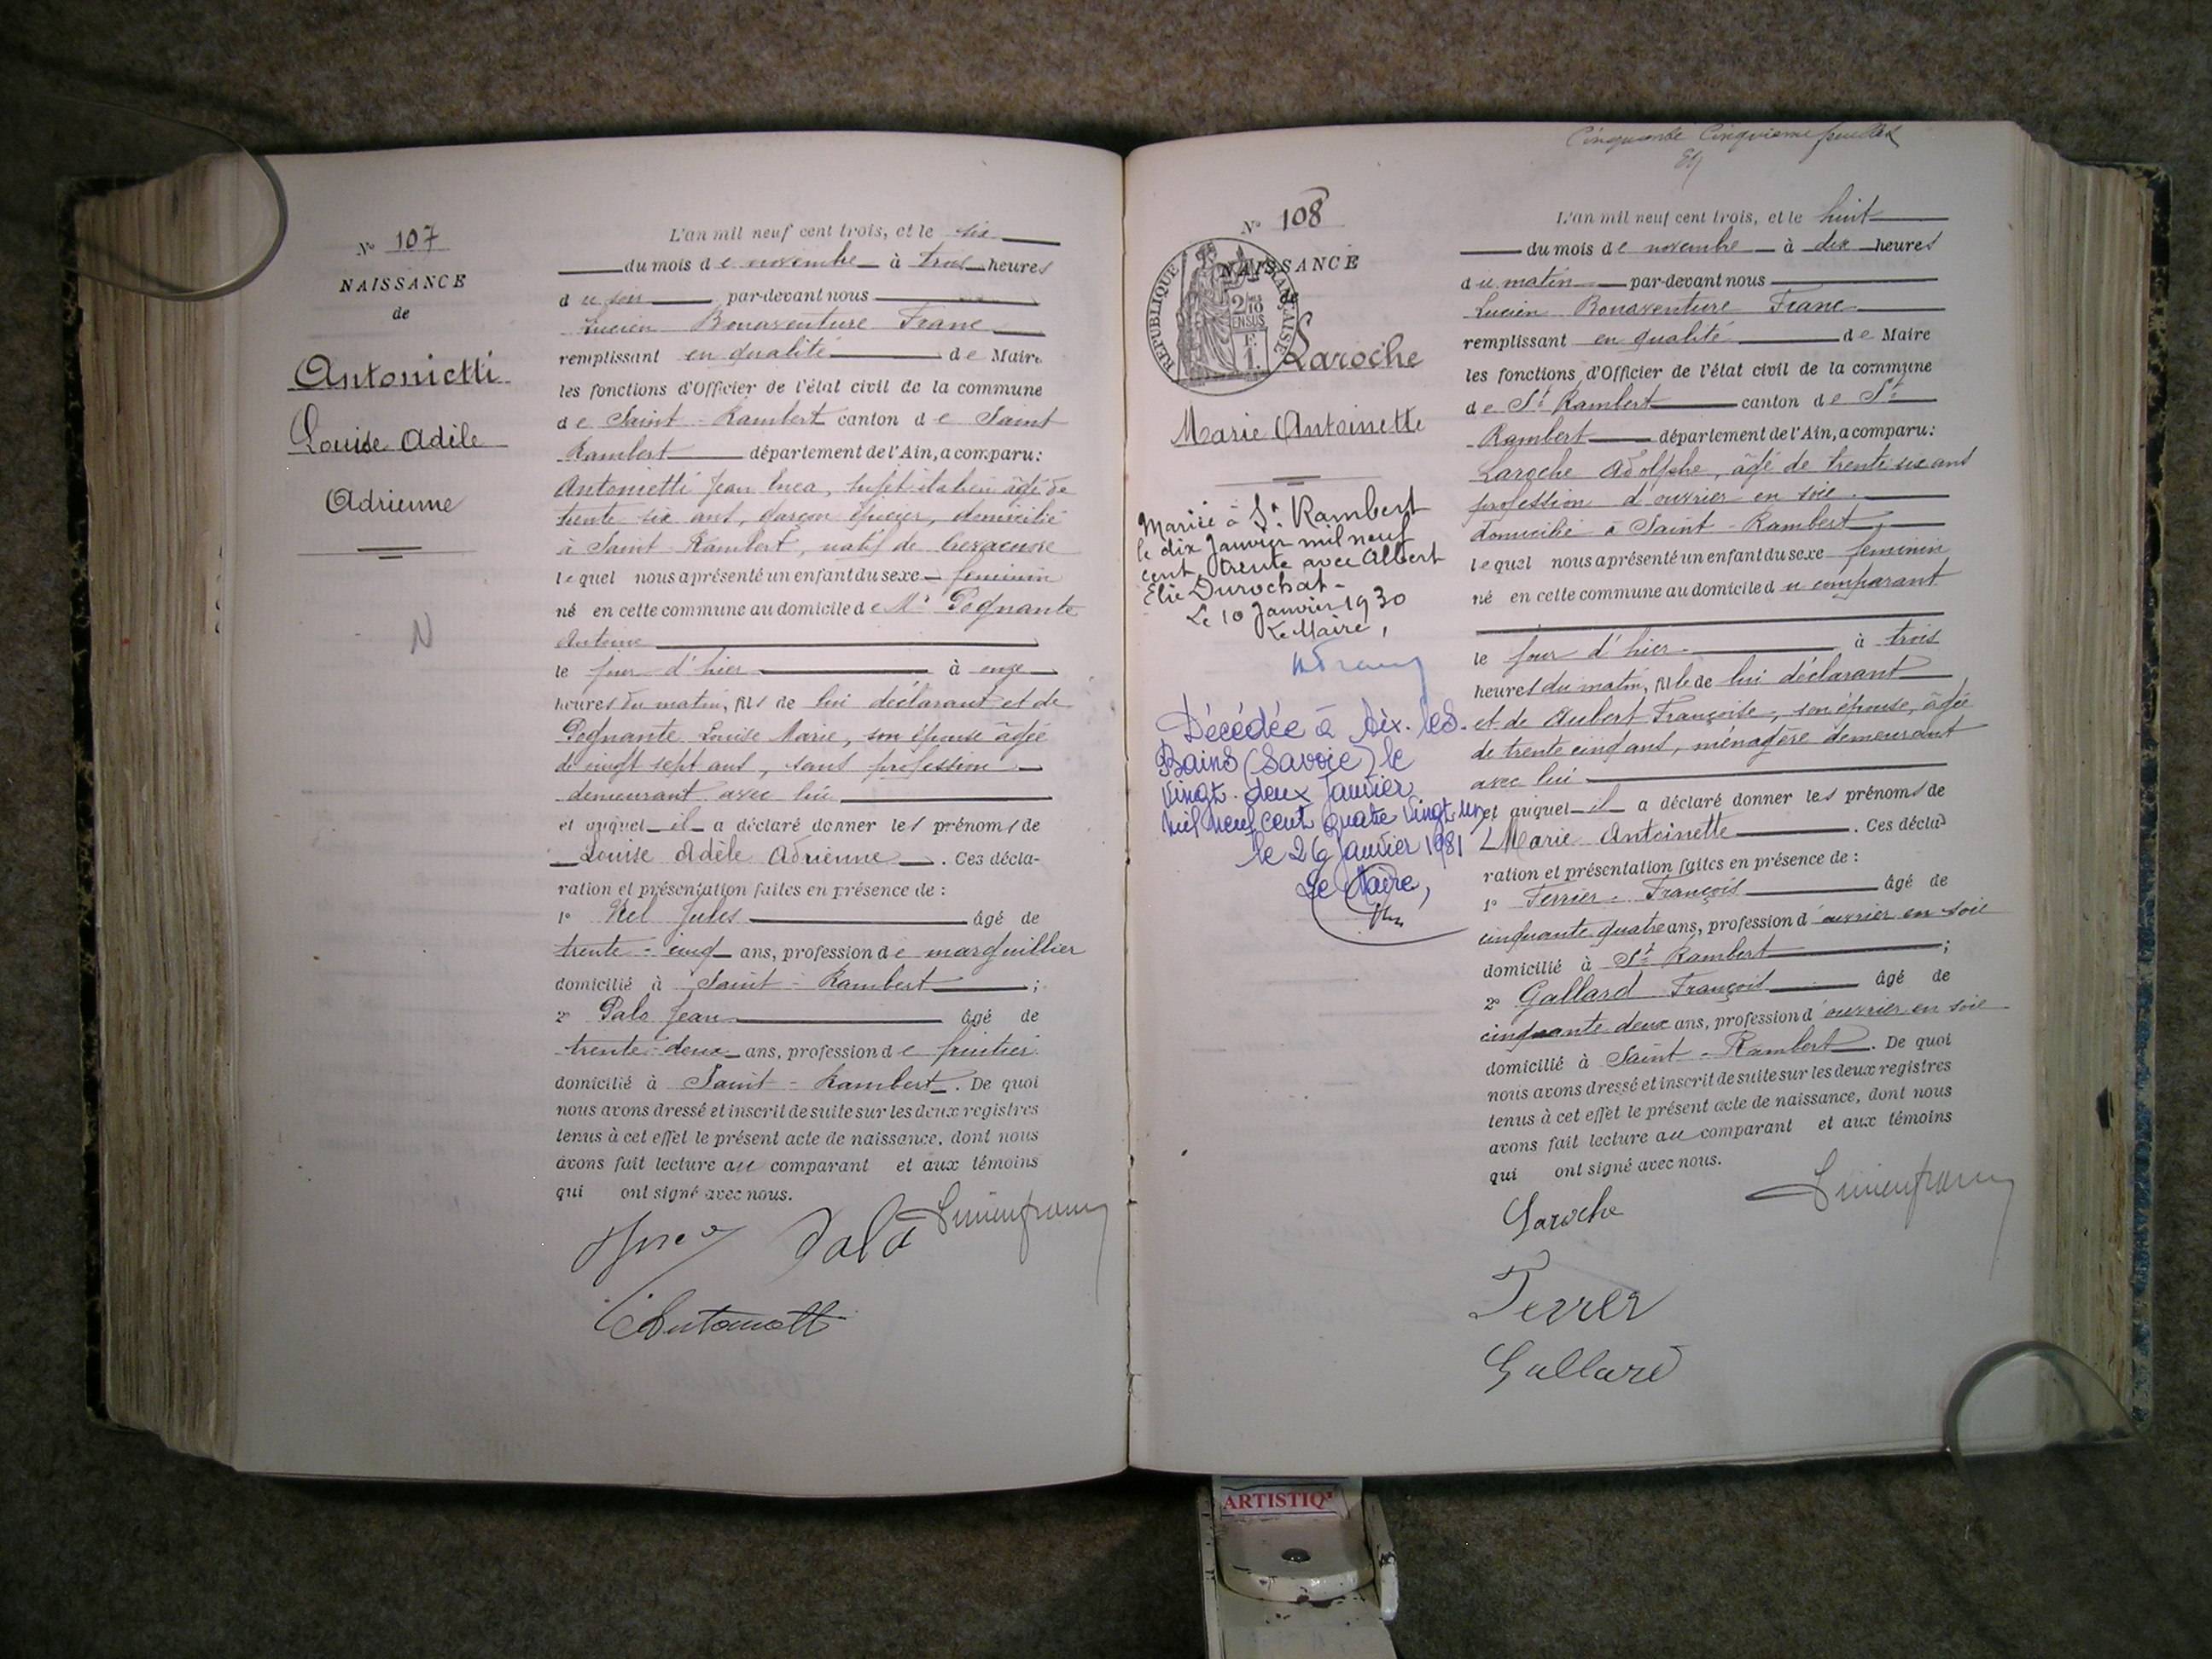 N° 107
NAISSANCE
de
Antonietti
Louise Adèle
Adrienne
N
L'an mil neuf cent trois, et le six
du mois de novembre à trois heures
du soir par-devant nous
Lucien Bonaventure Franc
remplissant en qualité de Maire
les fonctions d'Officier de l'état civil de la commune
de Saint-Rambert canton de Saint
Rambert département de l'Ain, a comparu:
Antonietti Jean Luca, sujet italien âgé de
trente six ans, garçon épicier, domicilié
à Saint-Rambert, natif de
lequel nous a présenté un enfant du sexe feminin
né en cette commune au domicile de Mr Pognante
Antoine
le jour d'hier à onze
heures du matin, fils de lui déclarant et de
Pognante Louise Marie, son épouse âgée
de vingt sept ans, sans profession
demeurant avec lui
et auquel il a déclaré donner les prénoms de
Louise Adèle Adrienne. Ces décla-
ration et présentation faites en présence de :
1° Jules âgé de
trente-cinq ans, profession de marguillier
domicilié à Saint-Rambert ;
2° Pala Jean âgé de
trente-deux ans, profession de fruitier
domicilié à Saint-Rambert. De quoi
nous avons dressé et inscrit de suite sur les deux registres
tenus à cet effet le présent acte de naissance, dont nous
avons fait lecture au comparant et aux témoins
qui ont signé avec nous.
Pala Lucien franc
Antonietti
Cinquante Cinquieme feuillet
N° 108
NAISSANCE
de
RÉPUBLIQUE FRANÇAISE
2/10 EN SUS
1 F.
Laroche
Marie Antoinette
Mariée à St Rambert
le dix Janvier mil neuf
cent trente avec Albert
Elie Durochat-
Le 10 Janvier 1930
Le Maire,
Décédée à Aix-les-
Bains (Savoie) le
vingt-deux Janvier
mil neuf cent quatre vingt un
le 26 Janvier 1981
Le Maire,
L'an mil neuf cent trois, et le huit
du mois de novembre à dix heures
du matin par-devant nous
Lucien Bonaventure Franc
remplissant en qualité de Maire
les fonctions d'Officier de l'état civil de la commune
de St Rambert canton de St
Rambert département de l'Ain, a comparu:
Laroche Adolphe, âgé de trente six ans
profession d'ouvrier en soie
domicilié à Saint-Rambert,
lequel nous a présenté un enfant du sexe feminin
né en cette commune au domicile du comparant
le jour d'hier à trois
heures du matin, fille de lui déclarant
et de Aubert Françoise, son épouse, âgée
de trente cinq ans, ménagère demeurant
avec lui
et auquel il a déclaré donner les prénoms de
Marie Antoinette. Ces décla
ration et présentation faites en présence de :
1° Ferrier François âgé de
cinquante quatre ans, profession d'ouvrier en soie
domicilié à St Rambert ;
2° Gallard François âgé de
cinquante deux ans, profession d'ouvrier en soie
domicilié à Saint-Rambert. De quoi
nous avons dressé et inscrit de suite sur les deux registres
tenus à cet effet le présent acte de naissance, dont nous
avons fait lecture au comparant et aux témoins
qui ont signé avec nous.
Laroche Lucien franc
Ferrer
Gallard
ARTISTIQ